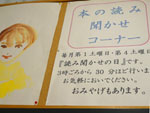 本の読み
聞かせ
コーナー
毎月第1土曜日・第4土曜日
『読み聞かせの日』です。
3時ごろから30分ほど行います
お気軽においでください。
おみやげもあります。